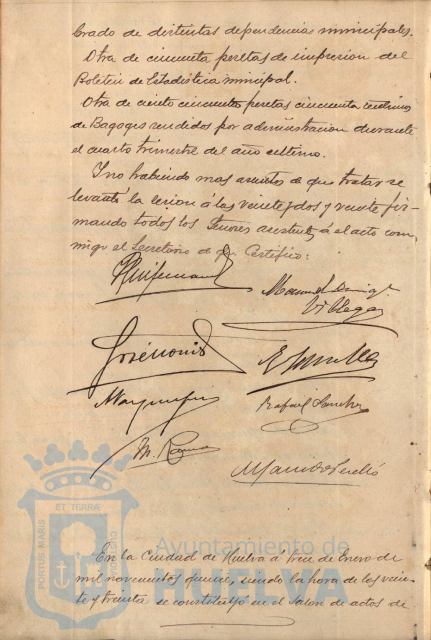 brado de distintas dependencias municipales.
Otra de cincuenta pesetas de impresion del
Boletin de Estadistica municipal.
Otra de ciento cincuenta pesetas cincuenta centimos
de Bagages rendidos por administracion durante
el cuarto trimestre del año ultimo.
Y no habiendo mas asuntos de que tratar se
levantó la sesion á las veinte y dos y veinte fir-
mando todos los Señores asistentes á el acto con-
migo el Secretario de que Certifico:
Manuel
Villegas
Rafael Sanchez
M.
PORTUS MARIS ET TERRÆ
Ayuntamiento de
HUELVA
En la Ciudad de Huelva á de Enero de
mil novecientos quince, siendo la hora de las vein-
te y treinta se constituyó en el Salon de actos de